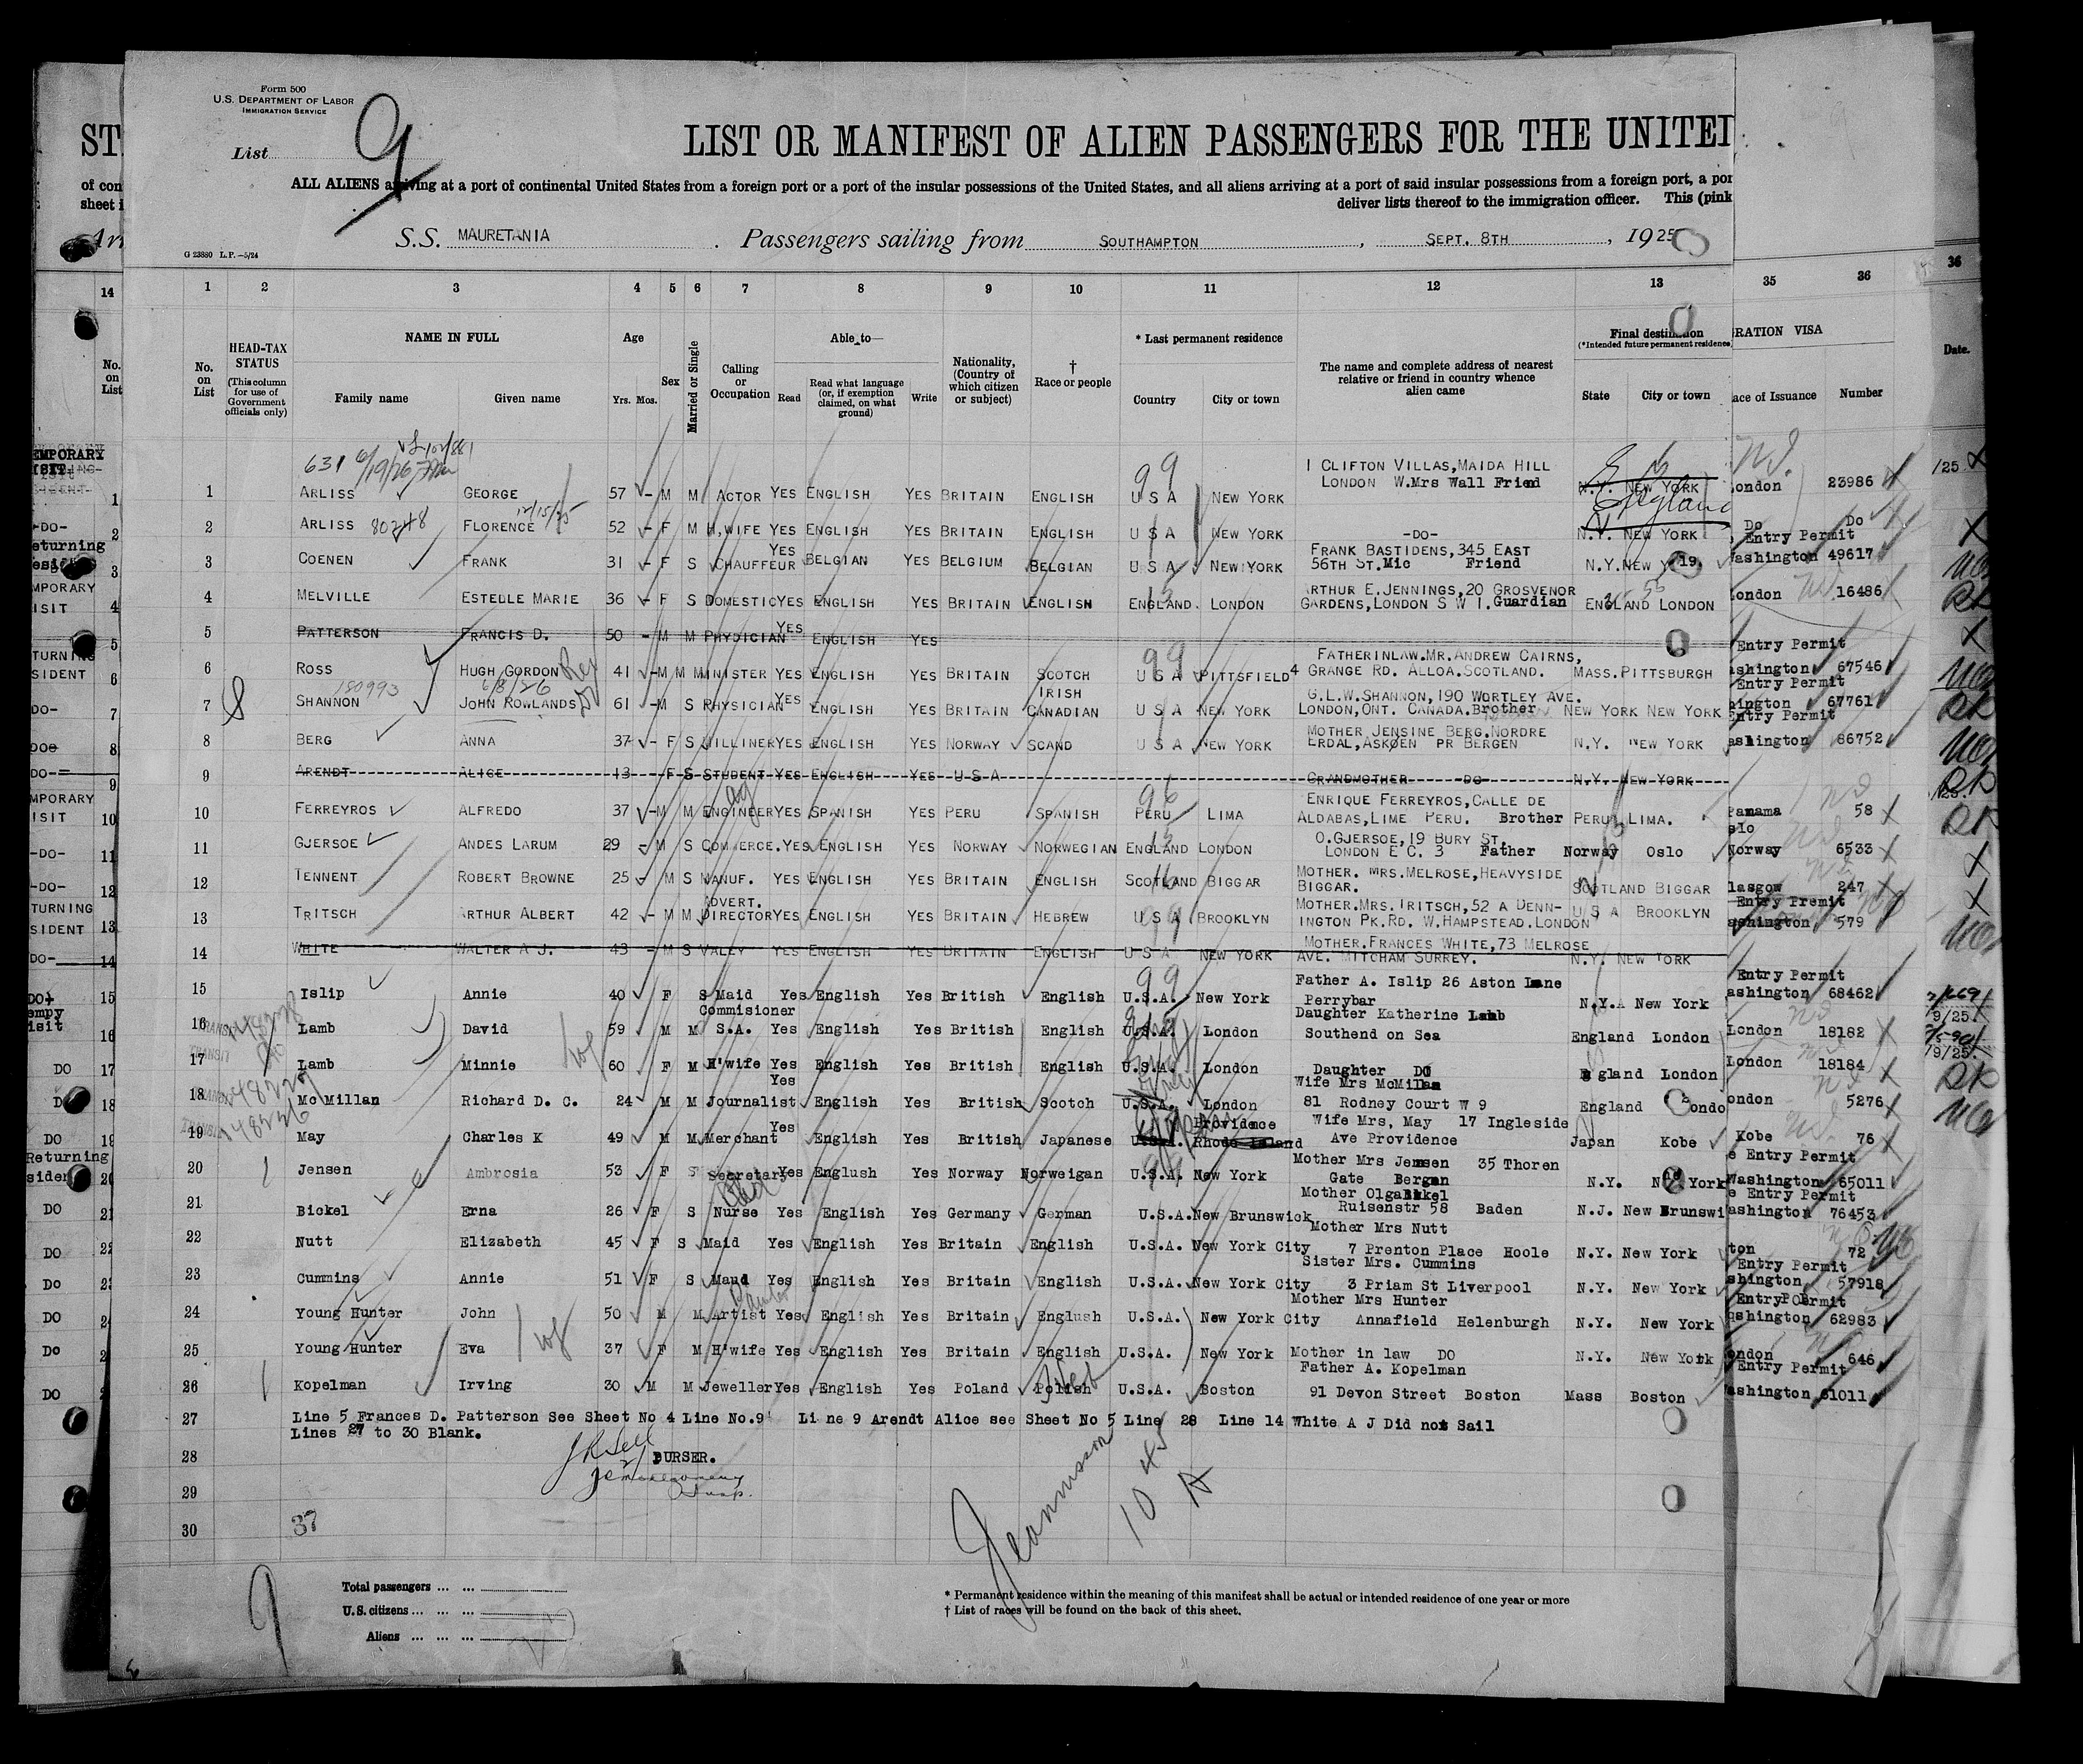 Form 500
U.S. DEPARTMENT OF LABOR
IMMIGRATION SERVICE
List 9
LIST OR MANIFEST OF ALIEN PASSENGERS FOR THE UNITE
ALL ALIENS arriving at a port of continental United States from a foreign port or a port of the insular possessions of the United States, and all aliens arriving at a port of said insular possessions from a foreign port, a por
deliver lists thereof to the immigration officer. This (pink
S.S. MAURETANIA . Passengers sailing from SOUTHAMPTON , SEPT. 8TH , 1925
G 23880 L.P.—5/24
14 1 2 3 4 5 6 7 8 9 10 11 12 13 35 36 36
No. on List
No. on List
HEAD-TAX STATUS (This column for use of Government officials only)
NAME IN FULL
Family name Given name
Age Yrs. Mos.
Sex
Married or Single
Calling or Occupation
Able to—
Read Read what language (or, if exemption claimed, on what ground) Write
Nationality, (Country of which citizen or subject)
† Race or people
* Last permanent residence
Country City or town
The name and complete address of nearest relative or friend in country whence alien came
Final destination
(*Intended future permanent residence
State City or town
RATION VISA
ace of Issuance Number
Date.
631 6/19/26
1 CLIFTON VILLAS, MAIDA HILL
1 ARLISS GEORGE 57 - M M ACTOR YES ENGLISH YES BRITAIN ENGLISH U S A NEW YORK LONDON W. Mrs Wall Friend N.Y. NEW YORK England ondon 23986
2 ARLISS 80248 FLORENCE 12/15/25 52 - F M H.WIFE YES ENGLISH YES BRITAIN ENGLISH U S A NEW YORK -DO- N.Y. NEW YORK Do Do
Entry Permit
FRANK BASTIDENS, 345 EAST
3 COENEN FRANK 31 - F S CHAUFFEUR YES BELGIAN YES BELGIUM BELGIAN U S A NEW YORK 56TH ST. Mic Friend N.Y. NEW Y ashington 49617
ARTHUR E. JENNINGS, 20 GROSVENOR
4 MELVILLE ESTELLE MARIE 36 - F S DOMESTIC YES ENGLISH YES BRITAIN ENGLISH ENGLAND. LONDON GARDENS, LONDON S W 1. Guardian ENGLAND LONDON ondon 16486
5 PATTERSON FRANCIS D. 50 - M M PHYDICIAN YES ENGLISH YES
Entry Permit
FATHERINLAW. MR. ANDREW CAIRNS,
6 ROSS HUGH GORDON Rev 41 - M M MINISTER YES ENGLISH YES BRITAIN SCOTCH U S A PITTSFIELD 4 GRANGE RD. ALLOA. SCOTLAND. MASS. PITTSBURGH shington 67546
Entry Permit
180993 6/8/26 IRISH G.L.W. SHANNON, 190 WORTLEY AVE.
7 SHANNON JOHN ROWLANDS 61 - M S PHYSICIAN YES ENGLISH YES BRITAIN CANADIAN U S A NEW YORK LONDON, ONT. CANADA. Brother NEW YORK NEW YORK ington 67761
Entry Permit
MOTHER JENSINE BERG, NORDRE
8 BERG ANNA 37 - F S MILLINER YES ENGLISH YES NORWAY SCAND U S A NEW YORK ERDAL, ASKØEN PR BERGEN N.Y. NEW YORK ashington 86752
9 ARENDT ALICE 13 F S STUDENT YES ENGLISH YES U S A GRANDMOTHER DO N.Y. NEW YORK
ENRIQUE FERREYROS, CALLE DE
10 FERREYROS ALFREDO 37 - M M ENGINEER YES SPANISH YES PERU SPANISH PERU LIMA ALDABAS, LIME PERU. Brother PERU LIMA. Panama 58
O. GJERSOE, 19 BURY ST, slo
11 GJERSOE ANDES LARUM 29 - M S COMMERCE. YES ENGLISH YES NORWAY NORWEGIAN ENGLAND LONDON LONDON E C. 3 Father Norway Oslo Norway 6533
MOTHER. MRS. MELROSE, HEAVYSIDE
12 TENNENT ROBERT BROWNE 25 M S MANUF. YES ENGLISH YES BRITAIN ENGLISH SCOTLAND BIGGAR BIGGAR. SCOTLAND BIGGAR lasgow 247
Entry Premit
ADVERT. MOTHER. MRS. TRITSCH, 52 A DENN-
13 TRITSCH ARTHUR ALBERT 42 - M M DIRECTOR YES ENGLISH YES BRITAIN HEBREW U S A BROOKLYN INGTON PK. RD. W. HAMPSTEAD. LONDON U S A BROOKLYN ashington 579
MOTHER. FRANCES WHITE, 73 MELROSE
14 WHITE WALTER A J. 43 - M S VALEY YES ENGLISH YES BRITAIN ENGLISH U S A NEW YORK AVE. MITCHAM SURREY. N.Y. NEW YORK
Entry Permit
Father A. Islip 26 Aston Lane
15 Islip Annie 40 F S Maid Yes English Yes British English U.S.A. New York Perrybar N.Y. New York ashington 68462
Commisioner Daughter Katherine Lamb
16 Lamb David 59 M M S.A. Yes English Yes British English U.S.A. London Southend on Sea England London London 18182
17 Lamb Minnie 60 F M H'wife Yes English Yes British English U.S.A. London Daughter DO gland London London 18184
Yes Wife Mrs McMillan
18 Mc Millan Richard D. C. 24 M M Journalist English Yes British Scotch U.S.A. London 81 Rodney Court W 9 England ondo ondon 5276
Yes Providence Wife Mrs, May 17 Ingleside
19 May Charles K 49 M M Merchant English Yes British Japanese U.S.A. Rhode Island Ave Providence Japan Kobe Kobe 76
e Entry Permit
Mother Mrs Jensen 35 Thoren
20 Jensen Ambrosia 53 F S Secretary Yes Englush Yes Norway Norweigan U.S.A. New York Gate Bergen N.Y. N York Washington 65011
e Entry Permit
Mother Olga Bikel
21 Bickel Erna 26 F S Nurse Yes English Yes Germany German U.S.A. New Brunswick Ruisenstr 58 Baden N.J. New Brunswi ashington 76453
Mother Mrs Nutt
22 Nutt Elizabeth 45 F S Maid Yes English Yes Britain English U.S.A. New York City 7 Prenton Place Hoole N.Y. New York ton 72
Entry Permit
Sister Mrs. Cummins
23 Cummins Annie 51 F S Maud Yes English Yes Britain English U.S.A. New York City 3 Priam St Liverpool N.Y. New York shington 57918
Entry Permit
Mother Mrs Hunter
24 Young Hunter John 50 M M Artist Yes English Yes Britain Englush U.S.A. New York City Annafield Helenburgh N.Y. New York shington 62983
25 Young Hunter Eva 37 F M H'wife Yes English Yes Britain English U.S.A. New York Mother in law DO N.Y. New York ondon 646
Entry Permit
Father A. Kopelman
26 Kopelman Irving 30 M M Jeweller Yes English Yes Poland Polish U.S.A. Boston 91 Devon Street Boston Mass Boston ashington 61011
27 Line 5 Frances D. Patterson See Sheet No 4 Line No.9 Line 9 Arendt Alice see Sheet No 5 Line 28 Line 14 White A J Did not Sail
Lines 27 to 30 Blank.
28 PURSER.
29
30 37
10 45 A
9
Total passengers ... ...
U.S. citizens ... ... ...
Aliens ... ... ...
* Permanent residence within the meaning of this manifest shall be actual or intended residence of one year or more
† List of races will be found on the back of this sheet.